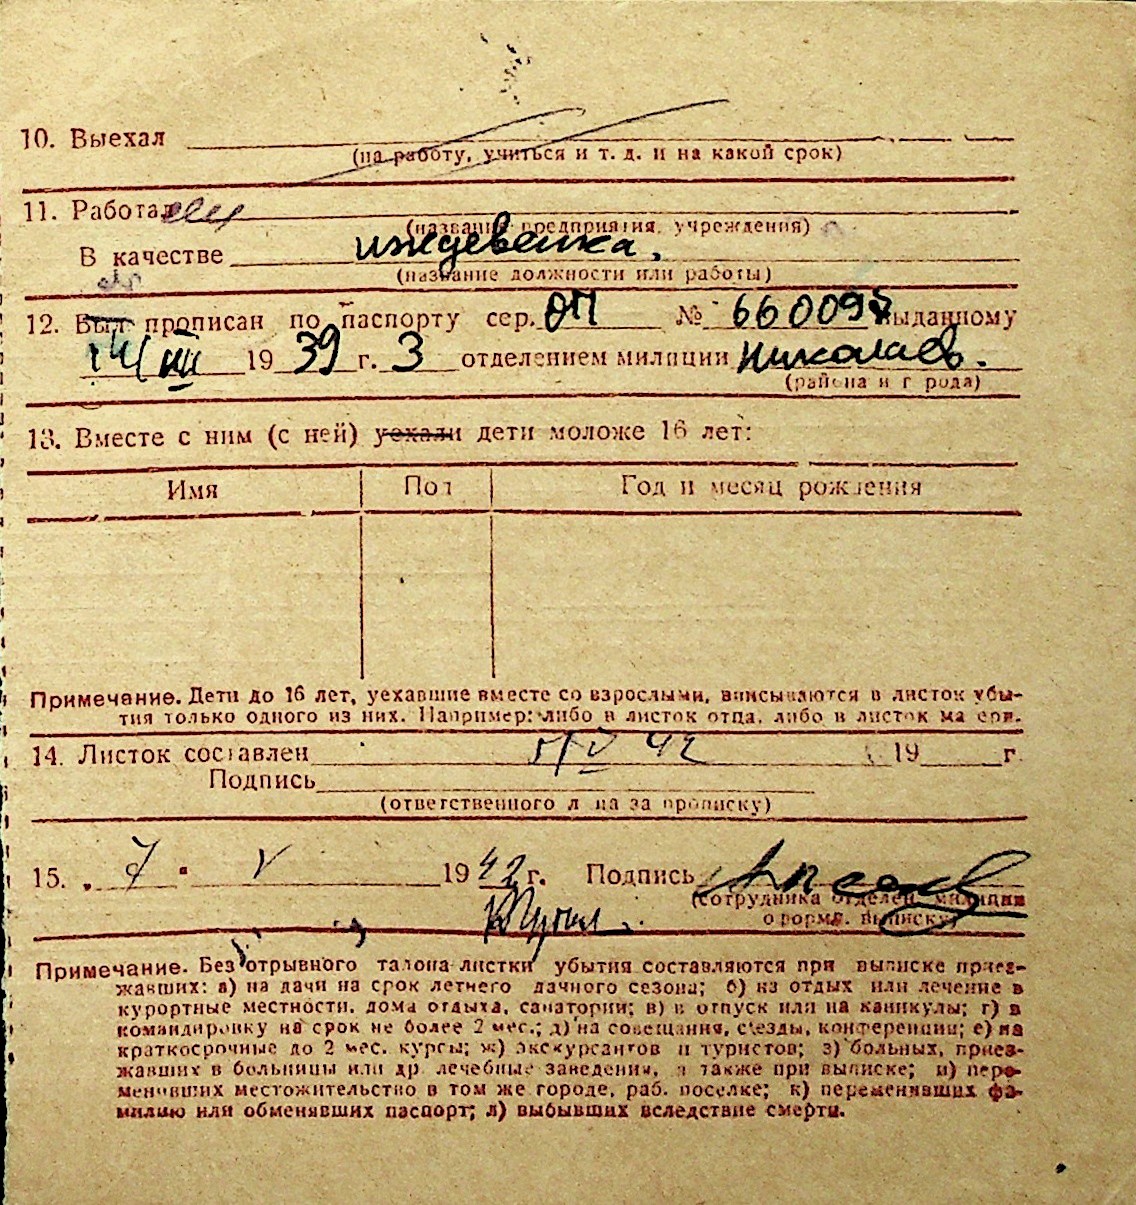 10. Выехал
(на работу, учиться и т. д. и на какой срок)
11. Работал
(название предприятия, учреждения)
В качестве иждевенка.
(название должности или работы)
12. Был прописан по паспорту сер. ОП № 660097 выданному
14/III 1939 г. 3 отделением милиции Николаев.
(района и города)
13. Вместе с ним (с ней) уехали дети моложе 16 лет:
Имя Пол Год и месяц рождения
Примечание. Дети до 16 лет, уехавшие вместе со взрослыми, вписываются в листок убы-
тия только одного из них. Например: либо в листок отца, либо в листок матери.
14. Листок составлен 5/V 42 19 г.
Подпись
(ответственного лица за прописку)
15. „ 7 " V 1942 г. Подпись
(сотрудника отделен. милиции
оформл. выписку)
Примечание. Без отрывного талона листки убытия составляются при выписке приез-
жавших: а) на дачи на срок летнего дачного сезона; б) на отдых или лечение в
курортные местности, дома отдыха, санатории; в) в отпуск или на каникулы; г) в
командировку на срок не более 2 мес.; д) на совещания, съезды, конференции; е) на
краткосрочные до 2 мес. курсы; ж) экскурсантов и туристов; з) больных, приез-
жавших в больницы или др. лечебные заведения, а также при выписке; и) пере-
менивших местожительство в том же городе, раб. поселке; к) переменивших фа-
милию или обменявших паспорт; л) выбывших вследствие смерти.